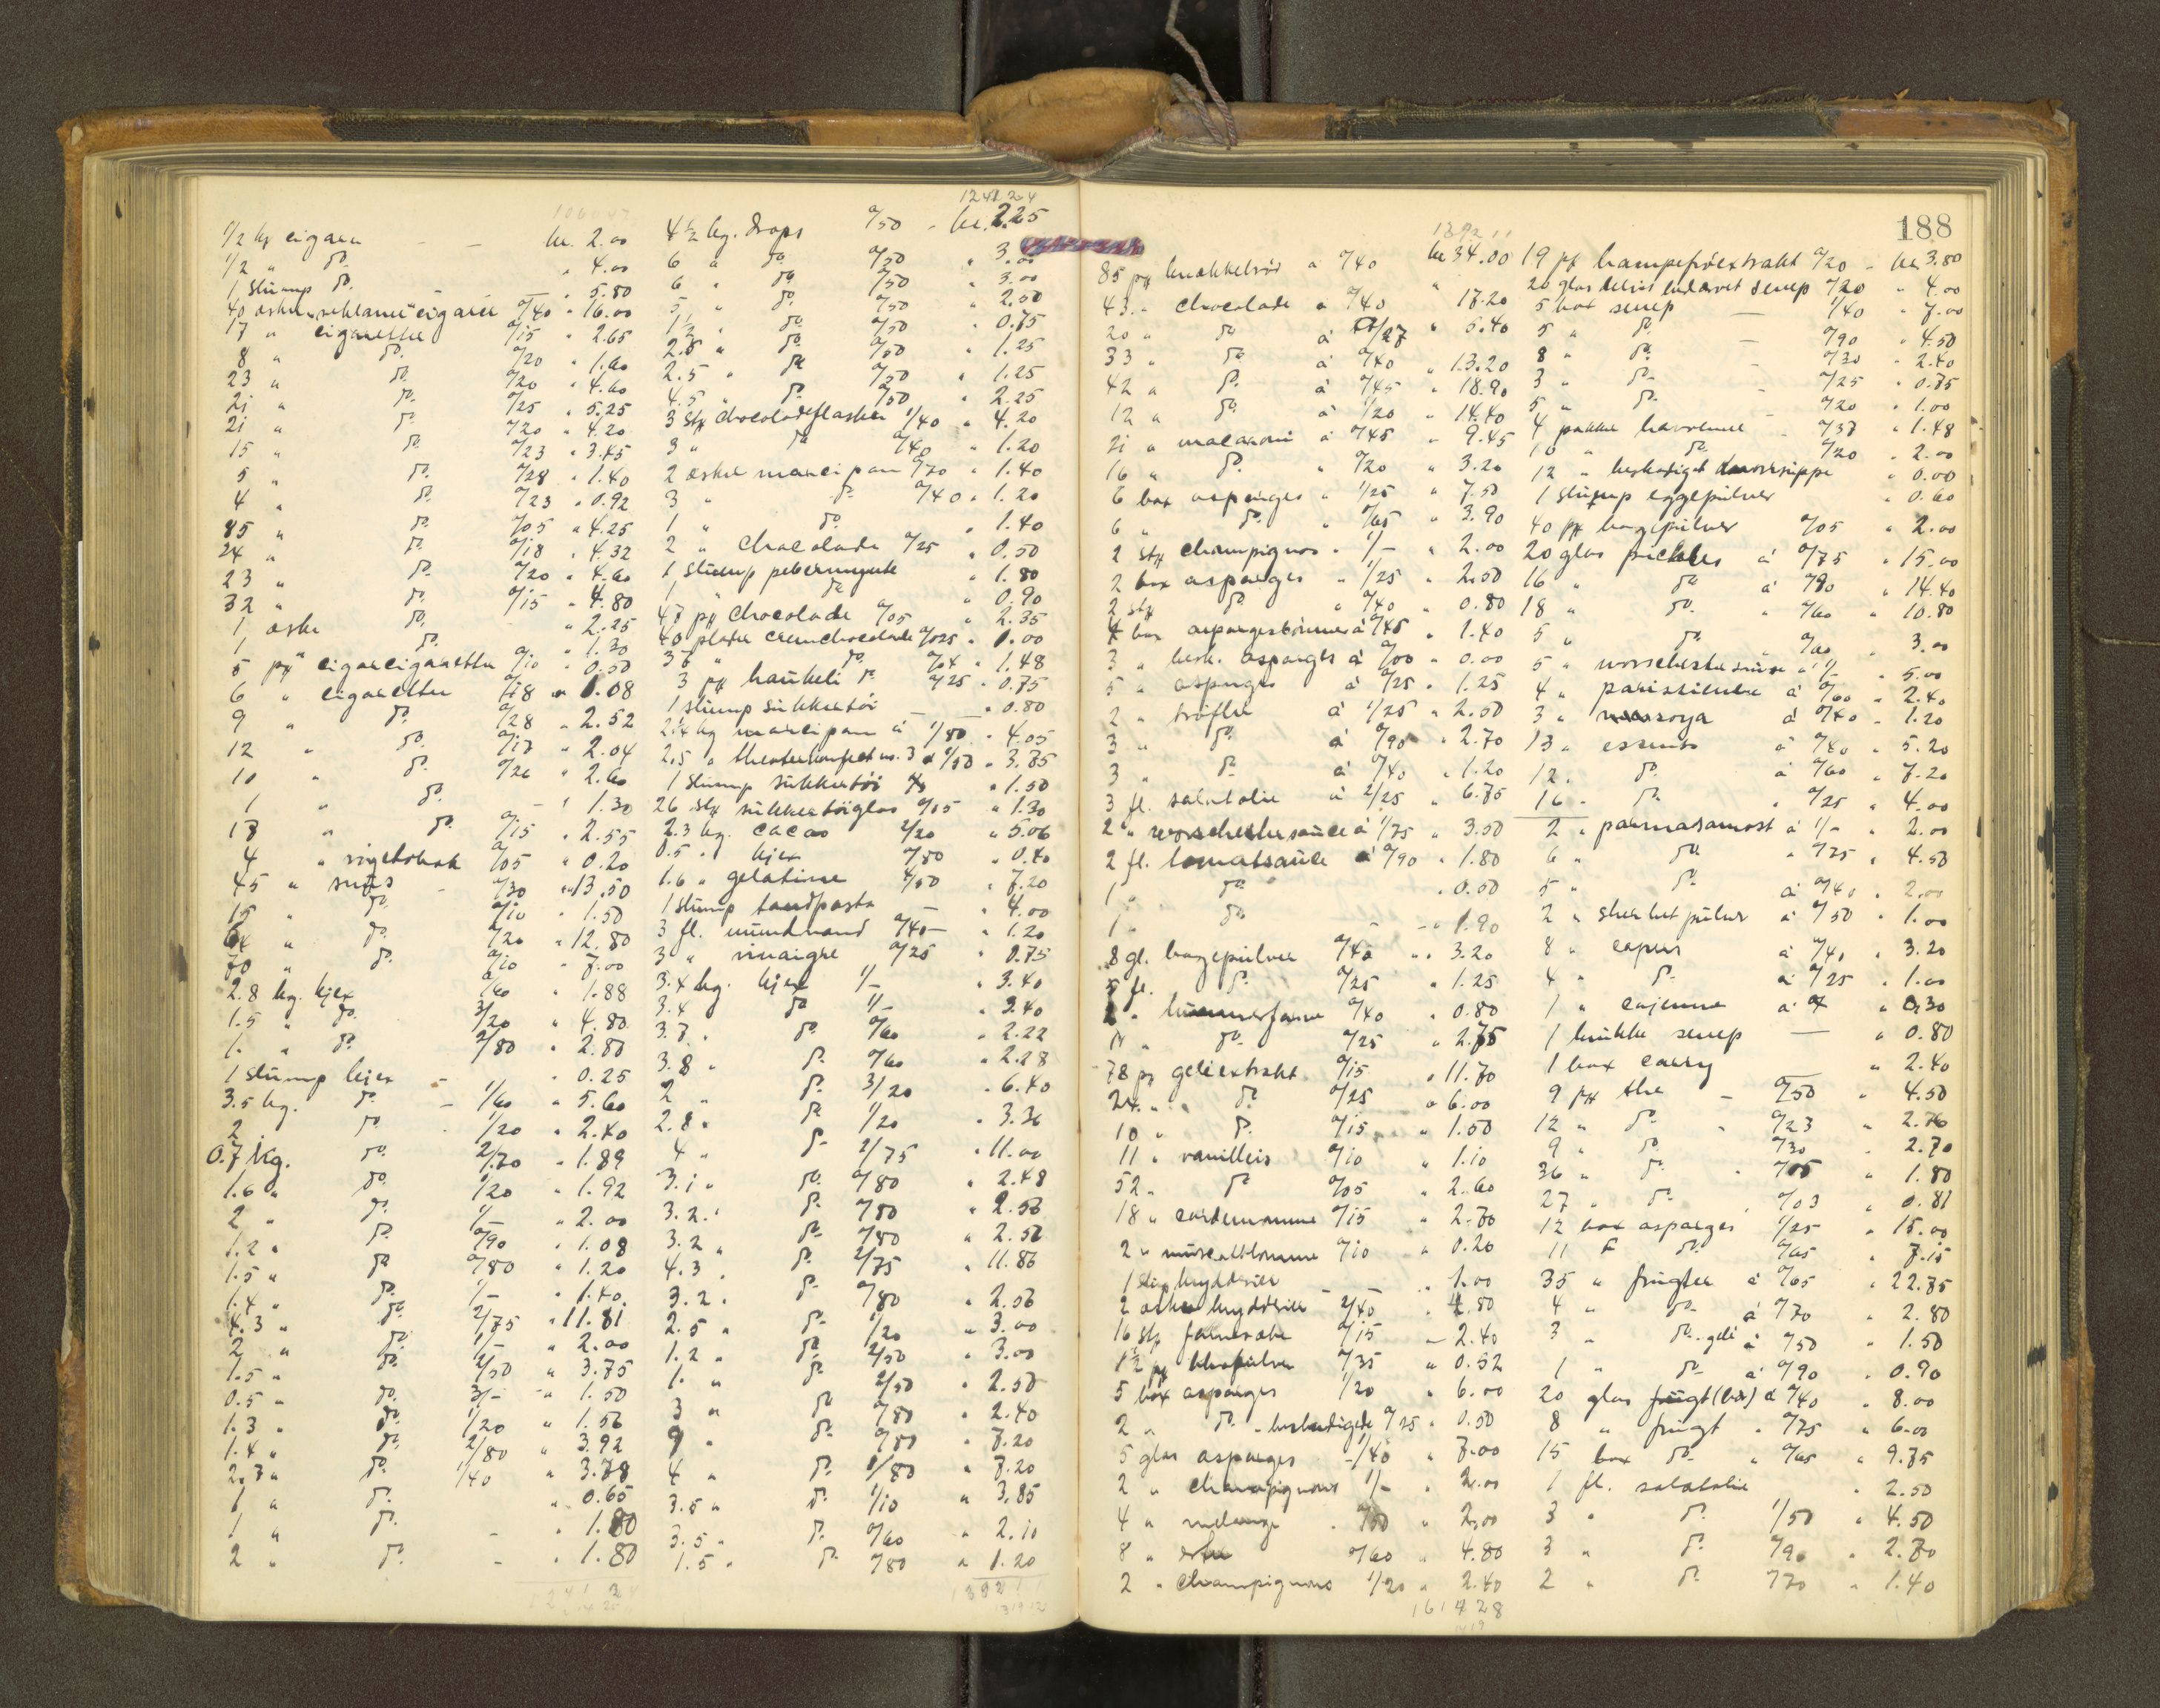 1/2 kg cigarer - - kr. 2.00
1/2 " do. " 4.00
1 slump do. - " 5.80
40 esker reklamecigarer 0/40 " 16.00
17 " cigaretter 0/15 " 2.65
8 " do. 0/20 " 1.60
23 " do. 0/20 " 4.60
21 " do. 0/25 " 5.25
21 " do. 0/20 " 4.20
15 " do. 0/23 " 3.45
5 " do. 0/28 " 1.40
4 " do. 0/23 " 0.92
85 " do. 0/05 " 4.25
24 " do. 0/18 " 4.32
23 " do. 0/20 " 4.60
32 " do. 0/15 " 4.80
1 eske do. " 2.25
1 " do. " 1.30
5 pk cigarcigaretter 0/10 " 0.50
6 " cigaretter 0/18 " 1.08
9 " do. 0/28 " 2.52
12 " do. 0/17 " 2.04
10 " do. 0/26 " 2.60
1 " do. - " 1.30
17 " do. 0/15 " 2.55
4 " røgetobak 0/05 " 0.20
45 " snus - 0/30 " 13.50
15 " do. 0/10 " 1.50
64 " do. 0/20 " 12.80
70 " do. 0/10 " 7.00
2.8 kg. kjex 0/60 " 1.88
1.5 " do. 3/20 " 4.80
1. " do. 2/80 " 2.80
1 slump kjex - " 0.25
3.5 kg. do. - 1/60 " 5.60
2 do. 1/20 " 2.40
0.7 kg. do. 2/70 " 1.89
1.6 " do. 1/20 " 1.92
2 " do. 1/- " 2.00
1.2 " do. 0/90 " 1.08
1.5 " do. 0/80 " 1.20
1.4 " do. 1/- " 1.40
4.3 " do. 2/75 " 11.81
2 " do. 1/- " 2.00
1.5 " do. 2/50 " 3.75
0.5 " do. 3/- " 1.50
1.3 " do. 1/20 " 1.56
1.4 " do. 2/80 " 3.92
2.7 " do. 1/40 " 3.78
1 " do. " 0.65
1 " do. - " 1.80
2 " do. - " 1.80
1241 24
4 1/2 kg. drops 0/50 - kr. 2.25
6 " do 0/50 " 3.00
6 " do 0/50 " 3.00
5 " do. 0/50 " 2.50
1 1/2 " do. 0/50 " 0.75
2.5 " do 0/50 " 1.25
2.5 " do 0/50 " 1.25
4.5 " do. 0/50 " 2.25
3 stk chocoladeflasker 1/40 " 4.20
3 " do 0/40 " 1.20
2 esker marcipan 0/70 " 1.40
3 " do. 0/40 " 1.20
1 " do. " 1.40
2 " chocolade 0/25 " 0.50
1 slump pebermynte " 1.80
1 " do " 0.90
47 pk chocolade 0/05 " 2.35
40 plater cremchocolade 0/025 " 1.00
37 " do. 0/04 " 1.48
3 pk haukeli do 0/25 " 0.75
1 slump sukkertøi - " 0.80
2 1/4 kg marcipan à 1/80 " 4.05
2.5 " theaterkonfect no. 3 à 1/50 " 3.75
1 slump sukkertøi " 1.50
26 stk sukkertøiglas 0/05 " 1.30
2.3 kg. cacao 2/20 " 5.06
0.5 " kjex 0/80 " 0.40
1.6 " gelatine 4/50 " 7.20
1 slump tandpasta - " 4.00
3 fl. mundvand 0/40 - " 1.20
3 " vinaigre 0/25 " 0.75
3.4 kg. kjex 1/- " 3.40
3.4 do 1/- " 3.40
3.7 " do. 0/60 " 2.22
3.8 " do. 0/60 " 2.28
2 " do. 3/20 " 6.40
2.8 " do 1/20 " 3.36
4 " do 2/75 " 11.00
3.1 " do. 0/80 " 2.48
3.2 " do. 0/80 " 2.56
3.2 " do. 0/80 " 2.56
4.3 " do. 2/75 " 11.86
3.2 " do 0/80 " 2.56
2.5 " do 1/20 " 3.00
1.2 " do. 2/50 " 3.00
1. " do 2/50 " 2.50
3 " do 0/80 " 2.40
9 " do. 0/80 " 7.20
4 " do. 1/80 " 7.20
3.5 " do. 1/10 " 3.85
3.5 " do. 0/60 " 2.10
1.5 " do. 0/80 " 1.20
188
85 pk knækkebrød à 0/40 kr 34.00
43 " chocolade à 0/40 " 17.20
20 " do à 0/27 " 5.40
33 " do à 0/40 " 13.20
42 " do. à 0/45 " 18.90
12 " do à 1/20 " 14.40
21 " macaroni à 0/45 " 9.45
16 " do. " 0/20 " 3.20
6 box asparges " 1/25 " 7.50
6 " do. " 0/65 " 3.90
2 stk champignos " 1/- " 2.00
2 box asparges " 1/25 " 2.50
2 stk do. " 0/40 " 0.80
4 box aspargesbønner à 0/45 " 1.40
3 " besk. asparges à 0/00 " 0.00
5 " asparges à 0/25 " 1.25
2 " trøfler à 1/25 " 2.50
3 " do. à 0/90 " 2.70
3 " do. à 0/40 " 1.20
3 fl. salatolie à 2/25 " 6.75
2 " worschestersauce à 1/75 " 3.50
2 fl. tomatsauce à 0/90 " 1.80
1 " do. " 0.50
1 " do - " 1.90
8 gl. bagepulver 0/40 " 3.20
5 fl. do. 0/25 " 1.25
2 " hummerfarve 0/40 " 0.80
11 " do. 0/25 " 2.75
78 pk geleextrakt 0/15 " 11.70
24 " do. 0/25 " 6.00
10 " do. 0/15 " 1.50
11 " vanilleis 0/10 " 1.10
52 " do 0/05 " 2.60
18 " cardemomme 0/15 " 2.70
2 " muscatblomme 0/10 " 0.20
1 slump krydderier - " 1.00
2 esker krydderier 2/40 " 4.80
16 stk 0/15 - 2.40
1 1/2 pk 0/35 " 0.52
5 box asparges 1/20 " 6.00
2 " do. beskadigede 0/25 " 0.50
5 glas asparges 1/40 " 7.00
2 " champignons 1/- " 2.00
4 " melange 0/50 " 2.00
8 " 0/60 " 4.80
2 " champignons 1/20 " 2.40
19 pk hampefrøextrakt 0/20 - kr. 3.80
20 glas senep 0/20 " 4.00
5 box senep 1/40 " 7.00
5 " do. - 0/90 " 4.50
8 " do. - 0/30 " 2.40
3 " do - 0/25 " 0.75
5 " do. 0/20 " 1.00
4 pakker havremel - 0/37 " 1.48
10 " do. 0/20 " 2.00
12 " beskadiget " 0.00
1 slump eggepulver " 0.60
40 pk bagepulver 0/05 " 2.00
20 glas pickles à 0/75 " 15.00
16 " do à 0/90 " 14.40
18 " do. " 0/60 " 10.80
5 " do. 0/60 " 3.00
5 " worschestersauce à 1/- " 5.00
4 " à 0/60 " 2.40
3 " soya à 0/40 " 1.20
13 " essents à 0/40 " 5.20
12 " do. à 0/60 " 7.20
16 " do. " 0/25 " 4.00
2 " parmasamost à 1/- " 2.00
6 " do " 0/75 " 4.50
5 " do. à 0/40 " 2.00
2 " sherbetpulver à 0/50 " 1.00
8 " capers à 0/40 " 3.20
4 " do. à 0/25 " 1.00
1 " cajenne " 0.30
1 krukke senep - " 0.80
1 box carry " 2.40
9 pk the - 0/50 " 4.50
12 " do. " 0/23 " 2.76
9 " do. 0/30 " 2.70
36 " do. " 0/05 " 1.80
27 " do. 0/03 " 0.81
12 box asparges 1/25 " 15.00
11 " do. 0/65 " 7.15
35 " frugter à 0/65 " 22.75
4 " do à 0/70 " 2.80
3 " do. gele à 0/50 " 1.50
1 " do à 0/90 " 0.90
20 glas frugt (bær) à 0/40 " 8.00
8 " frugt " 0/75 " 6.00
15 box do " 0/65 " 9.75
1 fl. salatolie " 2.50
3 " do. 1/50 " 4.50
3 " do. 0/90 " 2.70
2 " do. 0/70 " 1.40